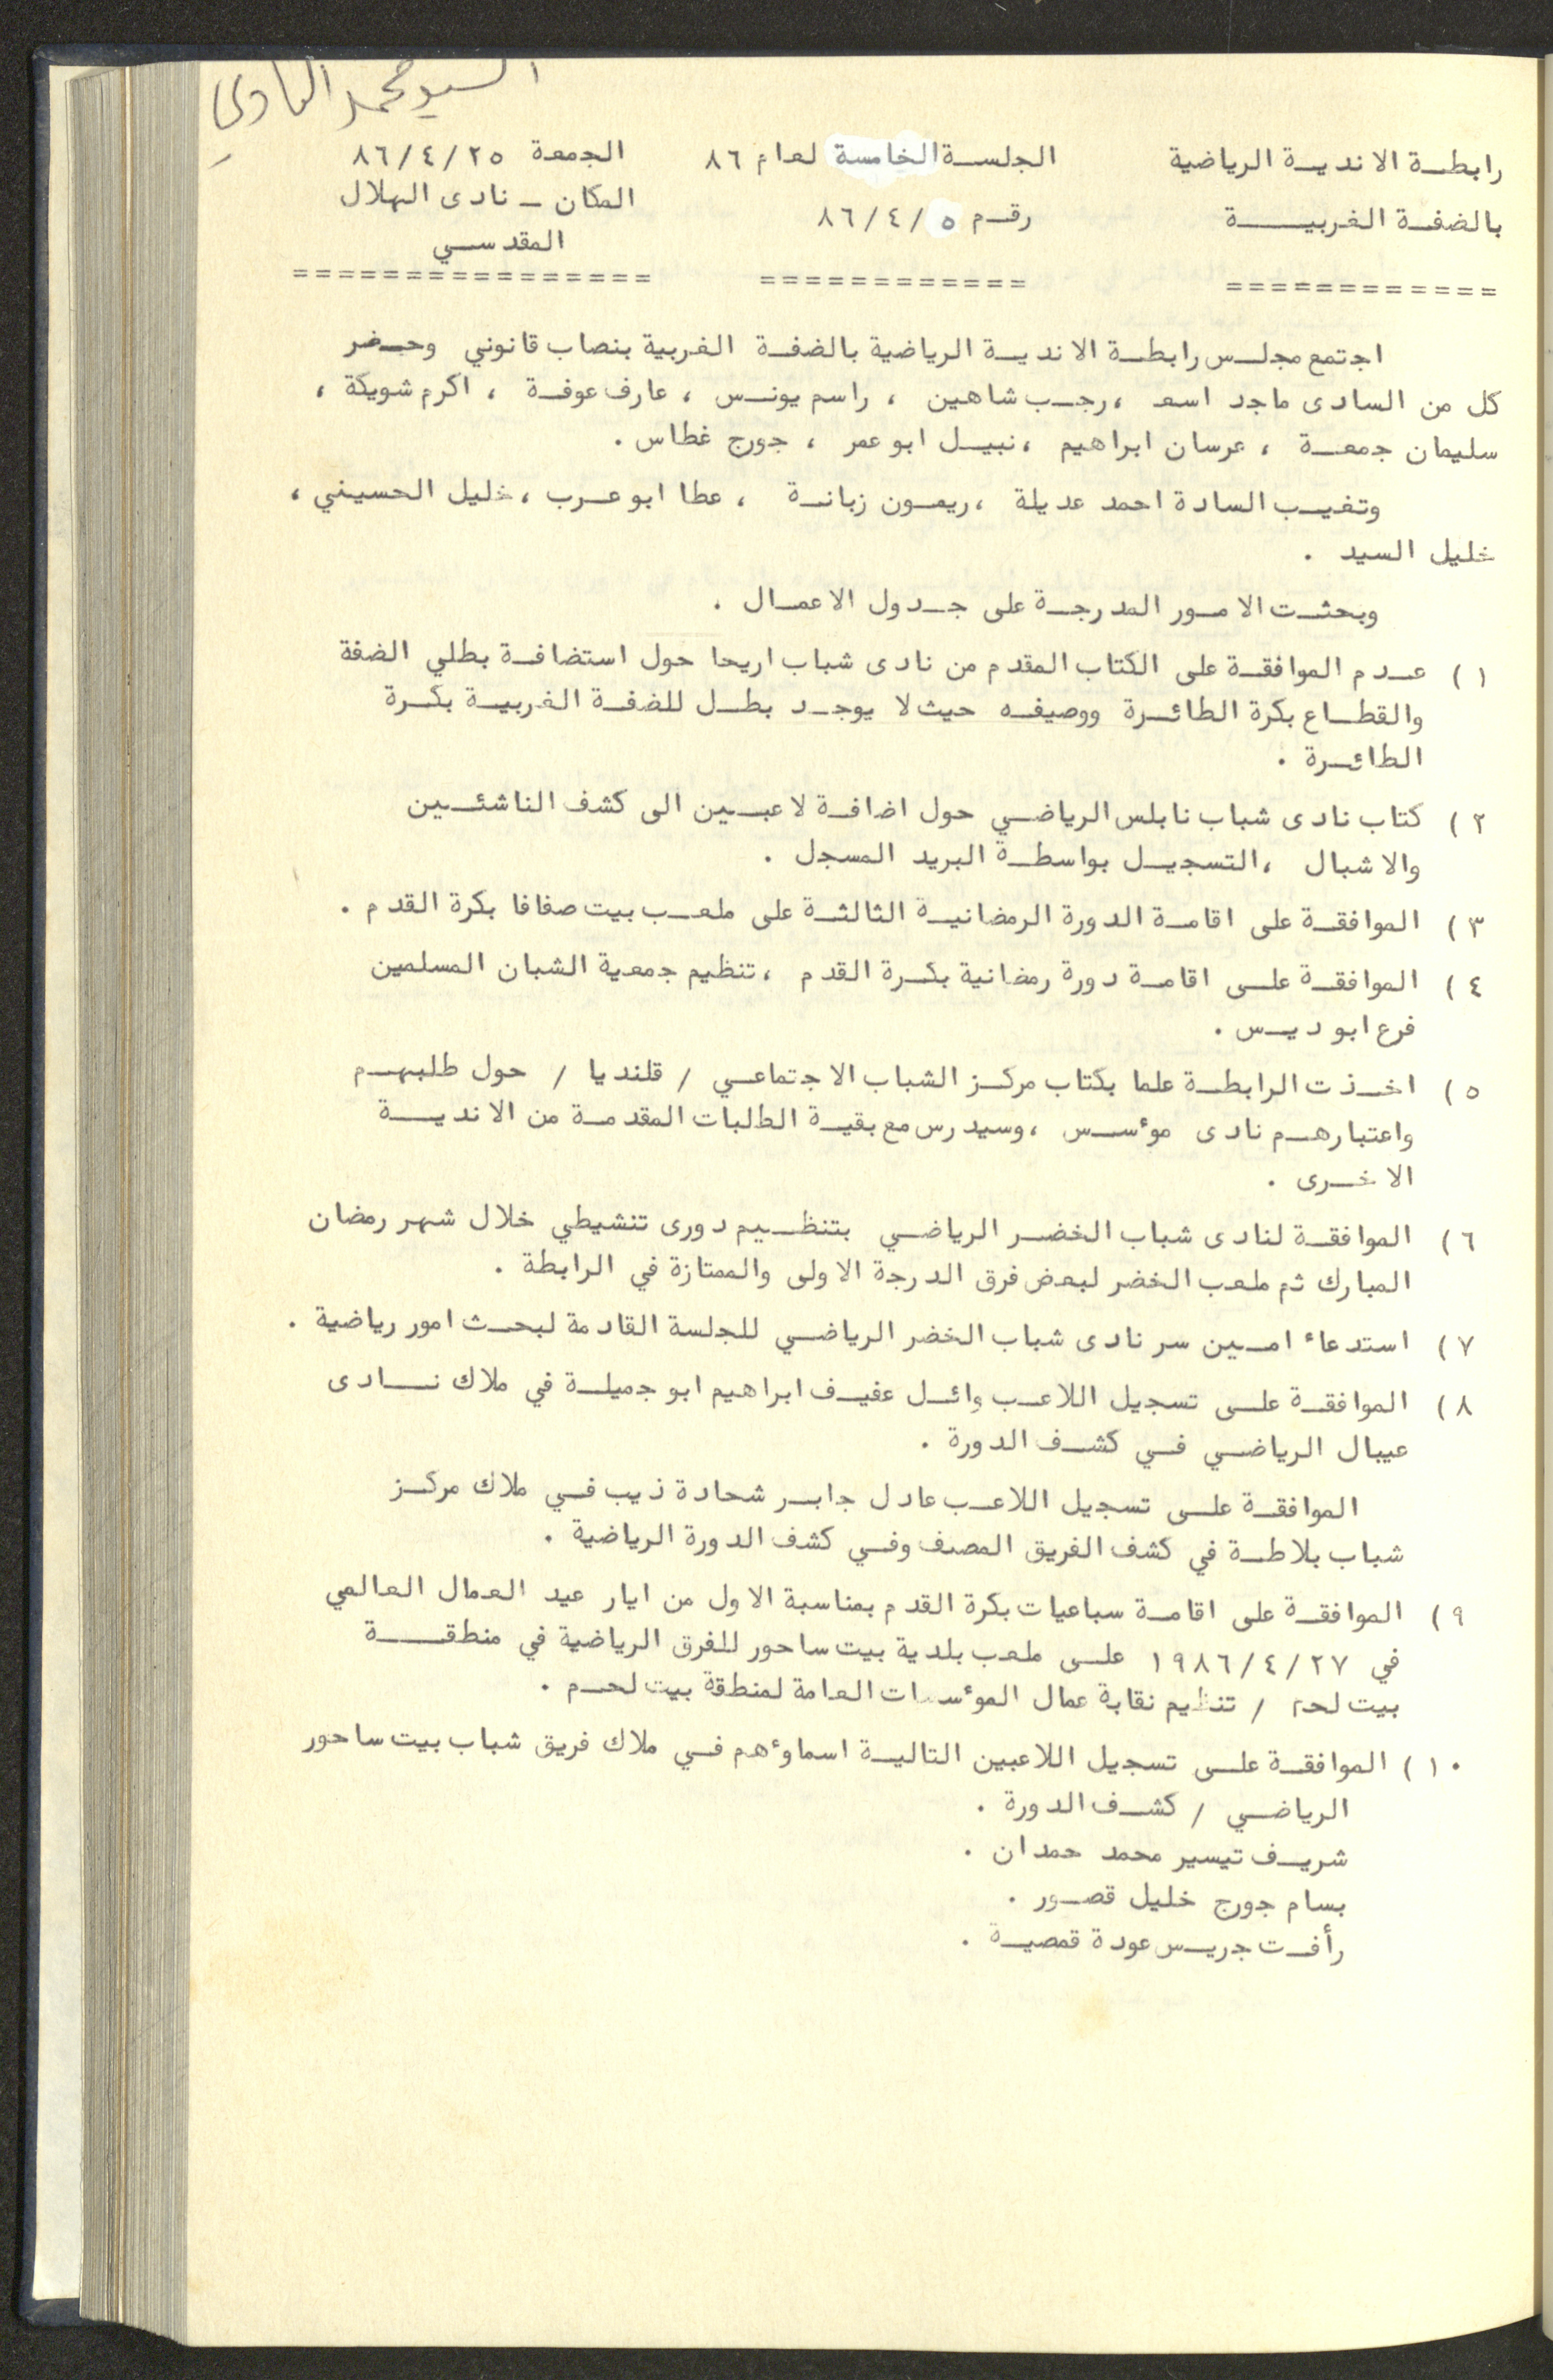 السيد محمد الهادي
رابطة الاندية الرياضية
بالضفة الغربية
============
الجلسة الخامسة لعام ٨٦
رقم ٥ / ٤ / ٨٦
============
الجمعة ٢٥ / ٤ / ٨٦
المكان ـ نادى الهلال
المقدسي
================
اجتمع مجلس رابطة الاندية الرياضية بالضفة الغربية بنصاب قانوني وحضر
كل من السادى ماجد اسعد ، رجب شاهين ، راسم يونس ، عارف عوفة ، اكرم شويكة ،
سليمان جمعة ، عرسان ابراهيم ، نبيل ابو عمر ، جورج غطاس .
وتغيب السادة احمد عديلة ، ريمون زبانة ، عطا ابو عرب ، خليل الحسيني ،
خليل السيد .
وبحثت الامور المدرجة على جدول الاعمال .
١ ) عدم الموافقة على الكتاب المقدم من نادى شباب اريحا حول استضافة بطلي الضفة
والقطاع بكرة الطائرة ووصيفه حيث لا يوجد بطل للضفة الغربية بكرة
الطائرة .
٢ ) كتاب نادى شباب نابلس الرياضي حول اضافة لاعبين الى كشف الناشئين
والاشبال ، التسجيل بواسطة البريد المسجل .
٣ ) الموافقة على اقامة الدورة الرمضانية الثالثة على ملعب بيت صفافا بكرة القدم .
٤ ) الموافقة على اقامة دورة رمضانية بكرة القدم ، تنظيم جمعية الشبان المسلمين
فرع ابو ديس .
٥ ) اخذت الرابطة علما بكتاب مركز الشباب الاجتماعي / قلنديا / حول طلبهم
واعتبارهم نادى موٴسس ، وسيدرس مع بقية الطلبات المقدمة من الاندية
الاخرى .
٦ ) الموافقة لنادى شباب الخضر الرياضي بتنظيم دورى تنشيطي خلال شهر رمضان
المبارك ثم ملعب الخضر لبعض فرق الدرجة الاولى والممتازة في الرابطة .
٧ ) استدعاء امين سر نادى شباب الخضر الرياضي للجلسة القادمة لبحث امور رياضية .
٨ ) الموافقة على تسجيل اللاعب وائل عفيف ابراهيم ابو جميلة في ملاك نادى
عيبال الرياضي في كشف الدورة .
الموافقة على تسجيل اللاعب عادل جابر شحادة ذيب في ملاك مركز
شباب بلاطة في كشف الفريق المصنف وفي كشف الدورة الرياضية .
٩ ) الموافقة على اقامة سباعيات بكرة القدم بمناسبة الاول من ايار عيد العمال العالمي
في ٢٧ / ٤ / ١٩٨٦ على ملعب بلدية بيت ساحور للفرق الرياضية في منطقة
بيت لحم / تنظيم نقابة عمال الموٴسسات العامة لمنطقة بيت لحم .
١٠ ) الموافقة على تسجيل اللاعبين التالية اسماوٴهم في ملاك فريق شباب بيت ساحور
الرياضي / كشف الدورة .
شريف تيسير محمد حمدان .
بسام جورج خليل قصور .
رأفت جريس عودة قمصية .